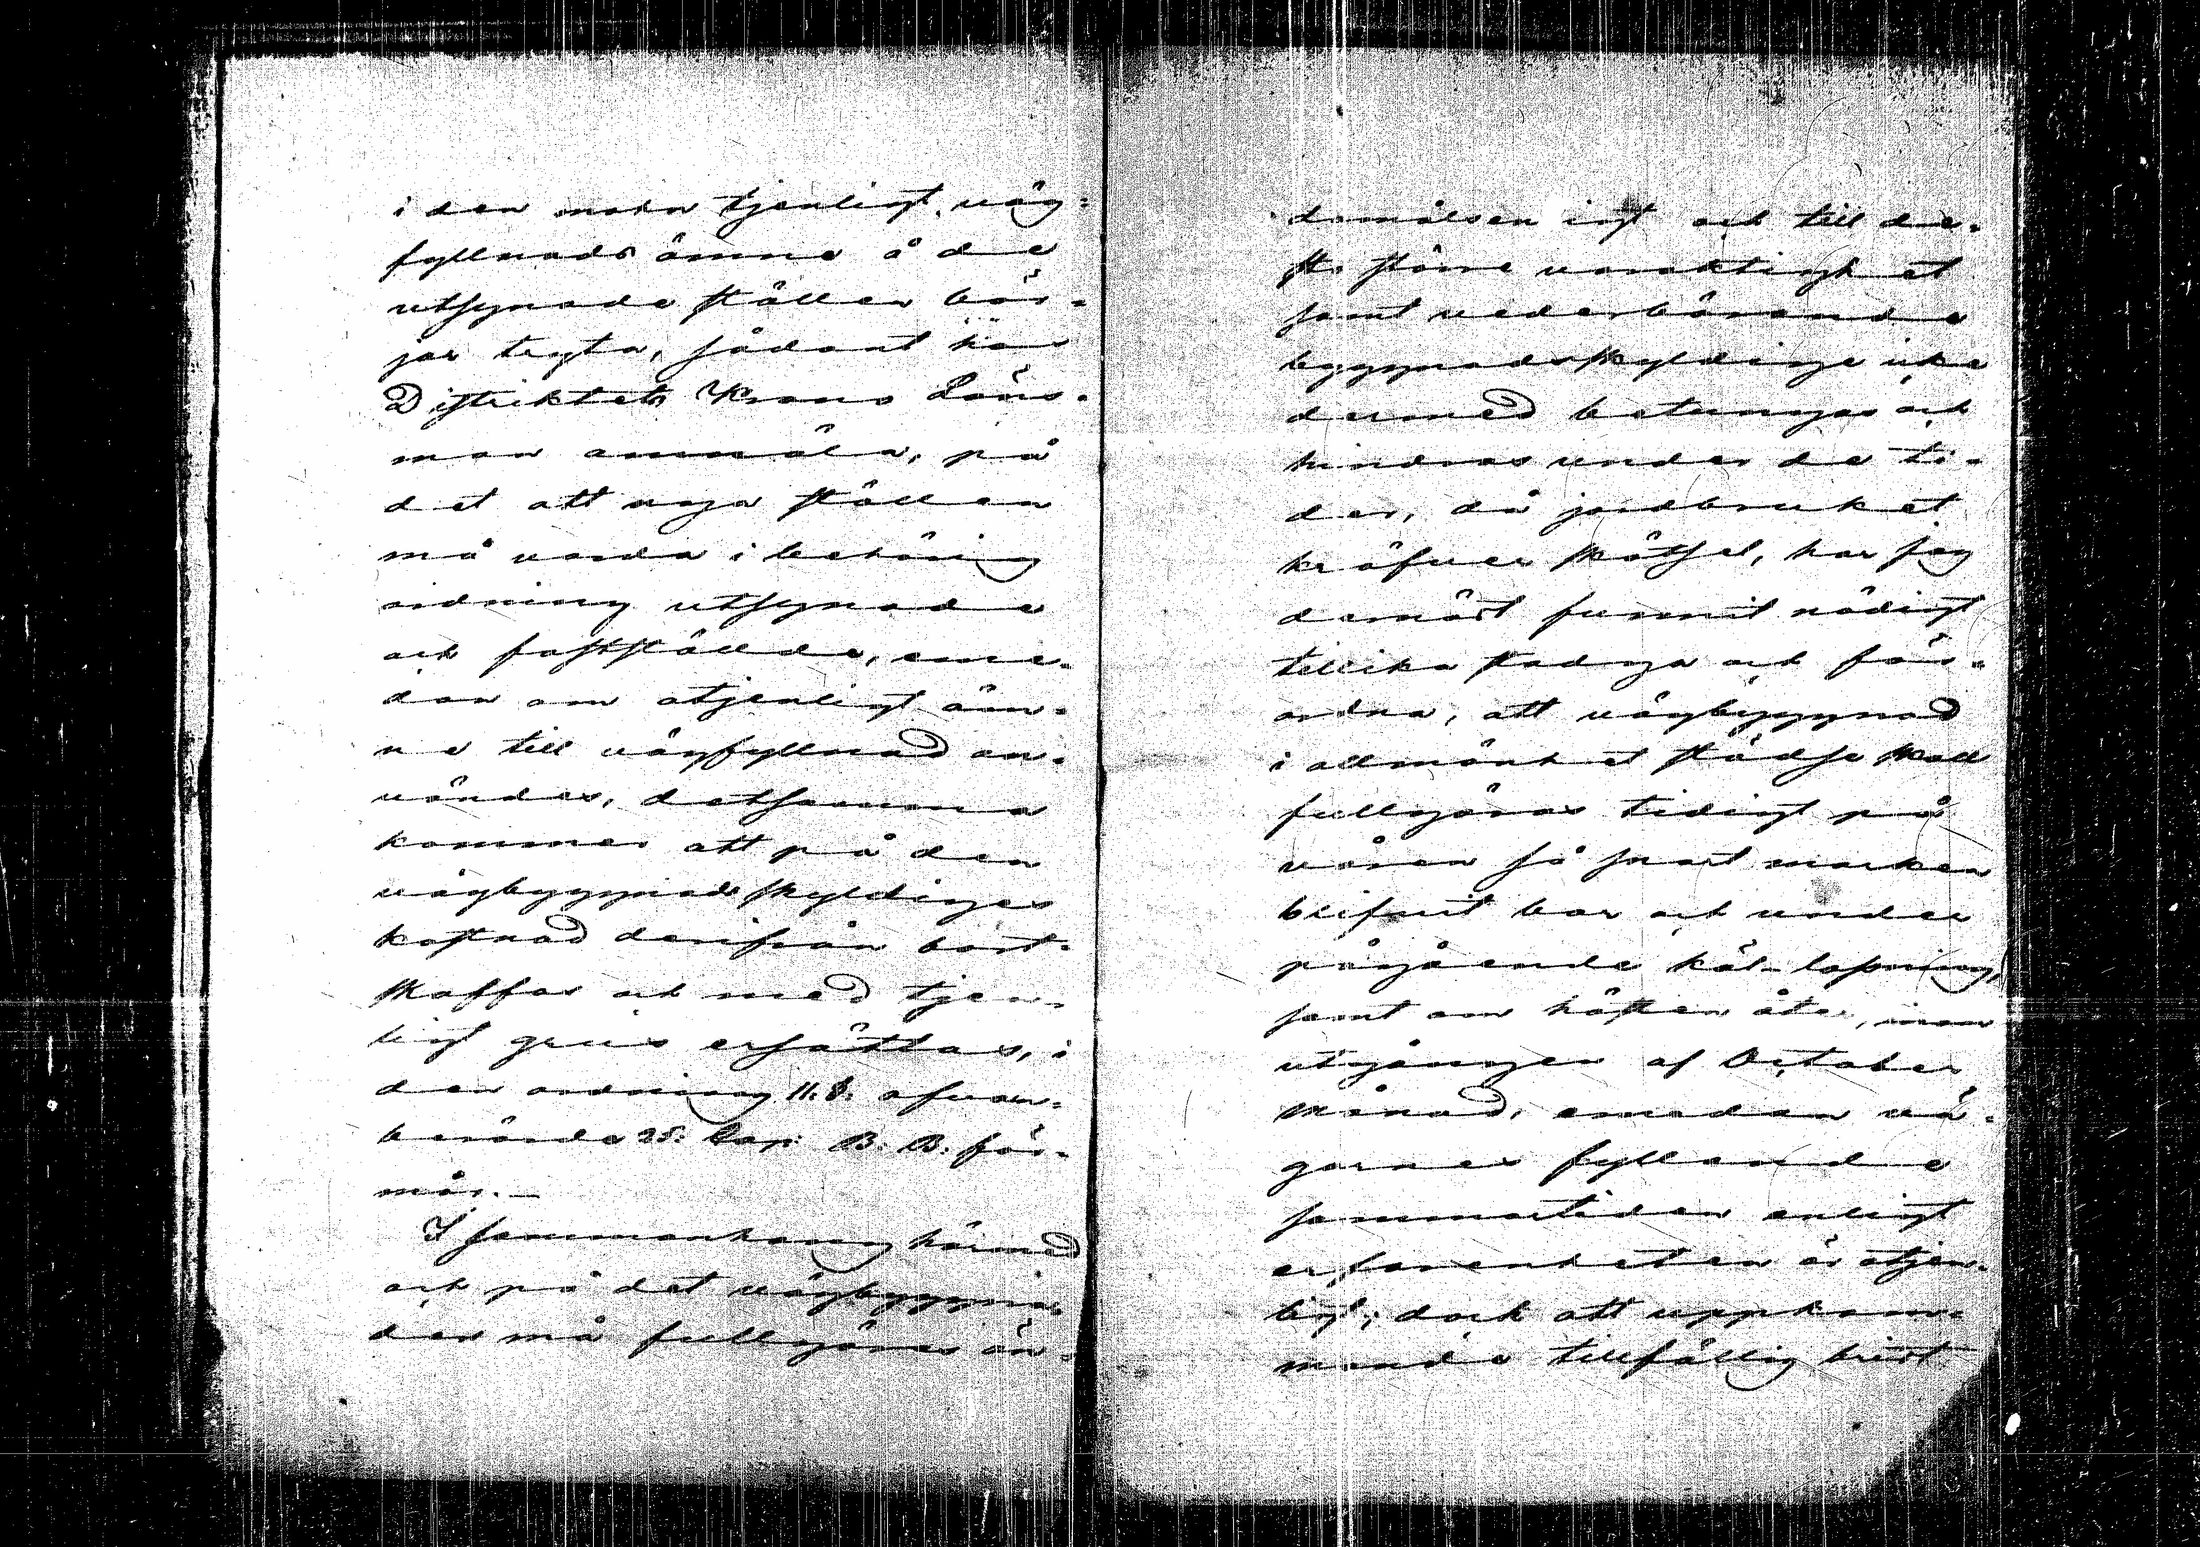 i den mohn tjenligt väg-
fyllnads ämne å de
utsynade ställen bör-
jar tryta, sådant hos
Distriktets Krono Läns-
man anmäla, på
det att nya ställen
må varda i behörig
ordning utsynade
och fastställde, eme-
dan om otjenligt äm-
ne till vägfyllnad an-
vändes, detsamma
kommer att på den
vägbyggnadsskyldiges
kostnad derifrån bort-
skaffas och med tjen-
ligt grus ersättas, i
den ordning 11. §. ofvan-
berörde 25: Cap: B. B. för-
mår.—
I sammanhang härmed
och på det vägbyggna-
der må fullgöras än-
damålsenligt och till de-
ss större varaktighet
samt vederbörande
byggnadsskyldige icke
dermed betungas och
hindras under de ti-
der, då jordbruket
kräfver skötsel, har jag
demäst funnit nödigt
tillika stadga och för-
ordna, att vägbyggnad
i allmänhet städse skall
fullgöras tidigt på
våren så snart marken
blifvit bar och under
pågående käl-lossning,
samt om hösten åter, innan
utgången af October
månad, emedan vä-
garnes fyllande
sommartiden enligt
erfarenheten är otjen-
ligt; dock att uppkom-
mande tillfällig brist